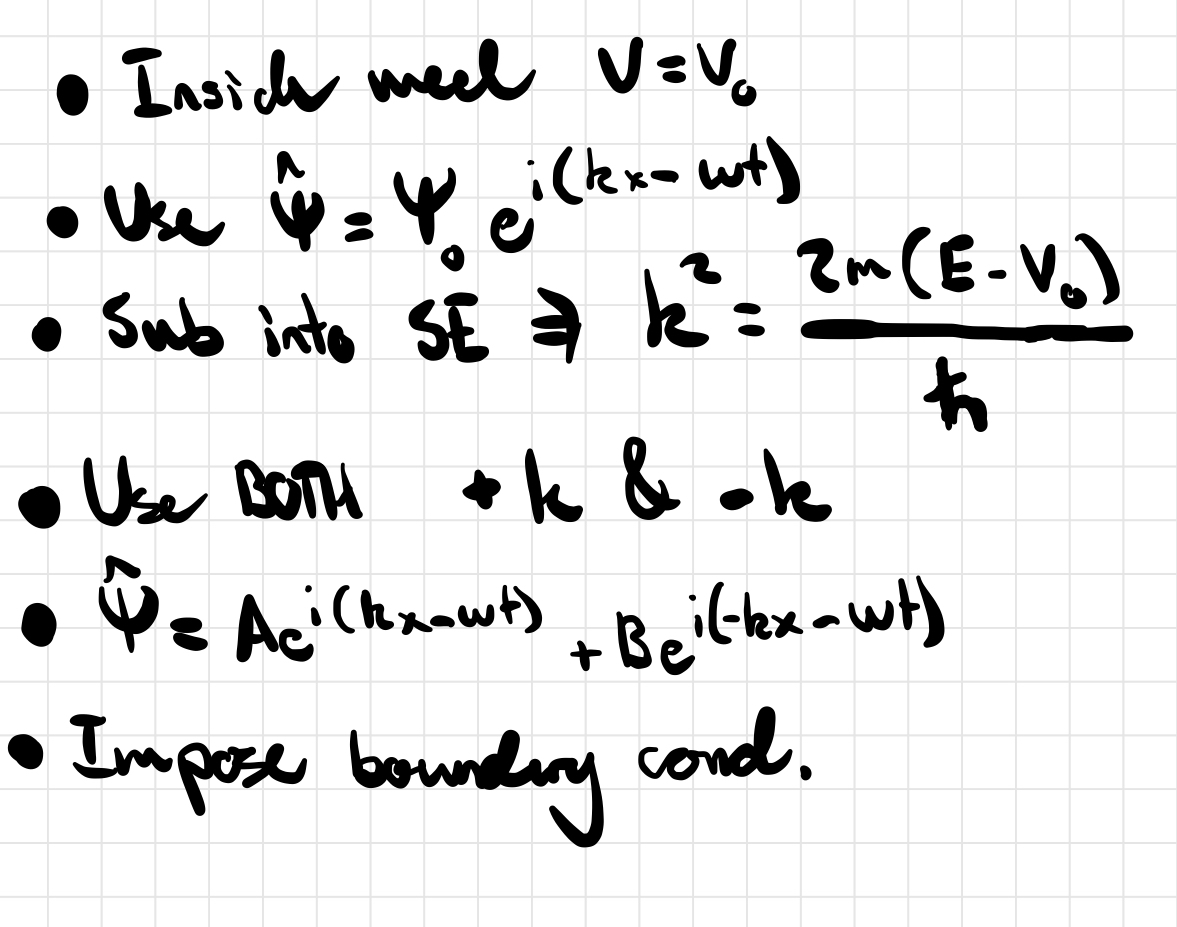 • Inside well V = V₀
• Use ψ̂ = ψ₀ e^{i(kx - ωt)}
• Sub into SE ⇒ k² = 2m(E - V₀) / ħ
• Use BOTH + k & - k
• ψ̂ = Ae^{i(kx - ωt)} + Be^{i(-kx - ωt)}
• Impose boundary cond.